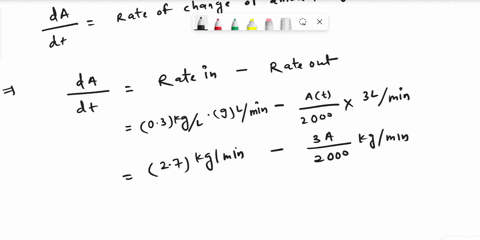 dA/dt = Rate of change of
⇒ dA/dt = Rate in - Rate out
= (0.3) kg/L · (9) L/min - A(t)/2000 × 3L/min
= (2.7) kg/min - 3A/2000 kg/min